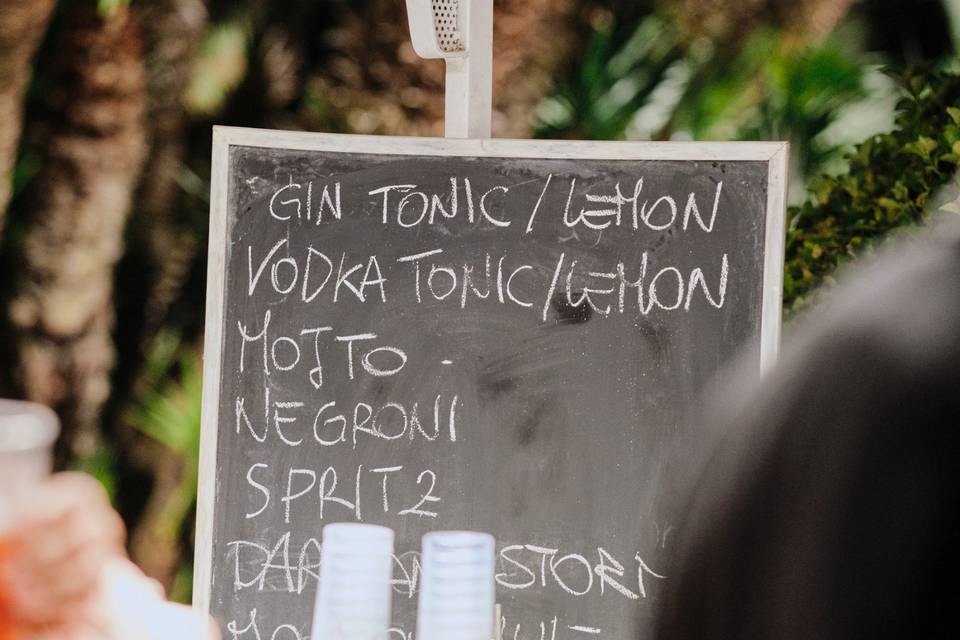 GIN TONIC / LEMON
VODKA TONIC / LEMON
MOJTO -
NEGRONI
SPRITZ
STORM